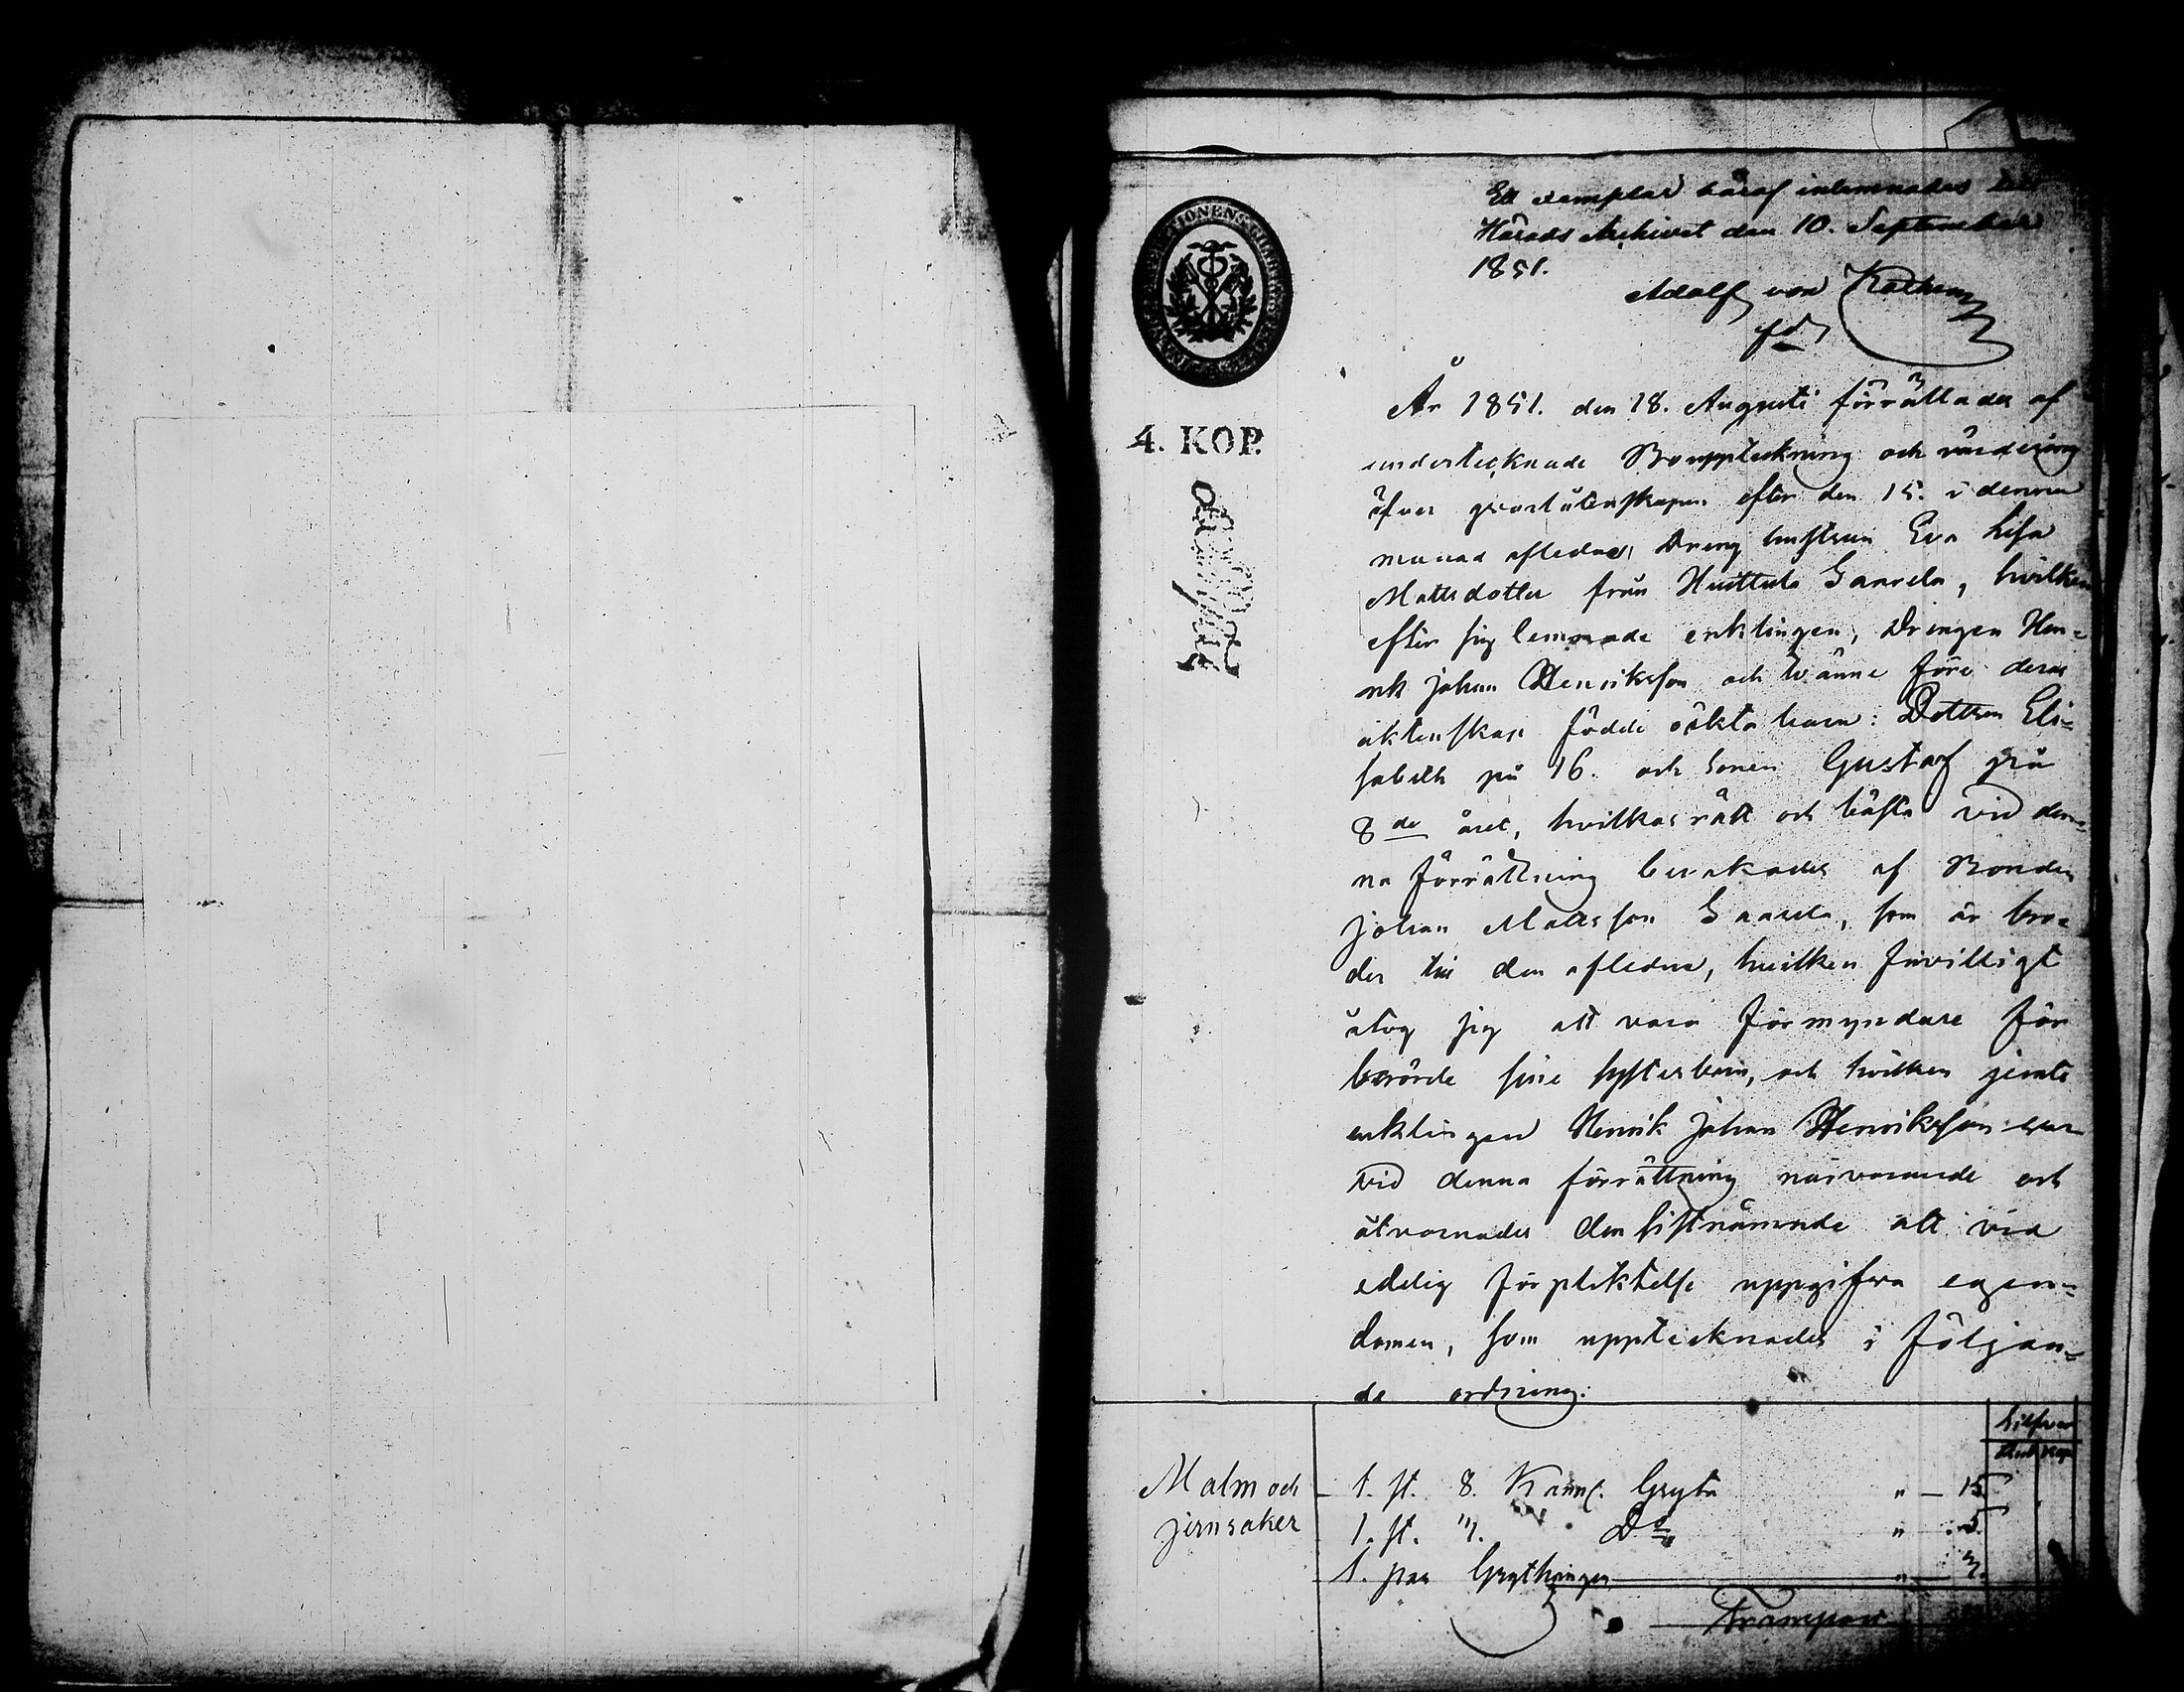 Ett exemplar häraf inlemnades till
Härads Archivet den 10. September
1851.
Adolf von
fd
År 1851. den 18. Augusti förrättades af
undertecknade Bouppteckning och värdering
öfver qvarlåtenskapen efter den 15. i denna
månad afledne Dreng hustrun Eva Lisa
Mattsdotter från Huittula Saarela, hvilken
efter sig lemnade enklingen, Drengen Hen=
rik Johan Henriksson och tvänne före deras
äktenskap födde oäkta barn: Dottren Eli=
sabeth på 16. och Sonen Gustaf på
8de året, hvilkas rätt och bästa vid den=
na förrättning bevakades af Bonden
Johan Mattsson Saarela, som är bro=
der till den aflidna, hvilken frivilligt
åtog sig att vara förmyndare för
berörde sine systerbarn, och hvilken jemte
enklingen Henrik Johan Henriksson var
vid denna förrättning närvarande och
åtvarnades den sistnämnde att vid
edelig förpliktelse uppgifva egen=
domen, som upptecknades i följan=
de ordning:
4. KOP.
Silfver
Rub Kop
Malm och
jernsaker
1. st. 8. Kann. Gryta " — 15.
1. st. 3. Do " — 5.
1. par Grythringer " — 3.
Transport